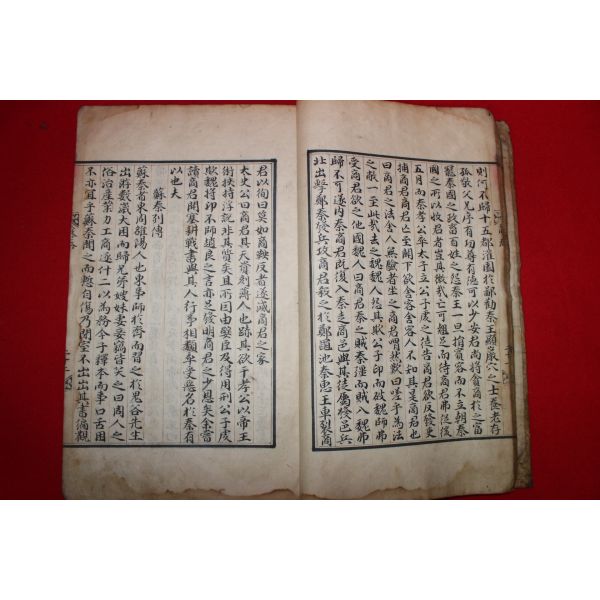 則何不歸十五都灌園於鄙勸秦王顯巖穴之士養老存
孤敬父兄序有功尊有德可以少安君尚將貪商於之富
寵秦國之政畜百姓之怨秦王一旦捐賓客而不立朝秦
國之所以收君者豈其微哉亡可翹足而待商君弗從後
五月而秦孝公卒太子立公子虔之徒告商君欲反發吏
捕商君商君亡至關下欲舍客舍客人不知其是商君也
曰商君之法舍人無驗者坐之商君喟然歎曰嗟乎爲法
之敝一至此哉去之魏魏人怨其欺公子卬而破魏師弗
受商君欲之他國魏人曰商君秦之賊秦彊而賊入魏弗
歸不可遂內秦商君既復入秦走商邑與其徒屬發邑兵
北出擊鄭秦發兵攻商君殺之於鄭黽池秦惠王車裂商
君以徇曰莫如商鞅反者遂滅商君之家
太史公曰商君其天資刻薄人也跡其欲干孝公以帝王
術挾持浮說非其質矣且所因由嬖臣及得用刑公子虔
欺魏將卬不師趙良之言亦足發明商君之少恩矣余嘗
讀商君開塞耕戰書與其人行事相類卒受惡名於秦有
以也夫
蘇秦列傳
蘇秦者東周雒陽人也東事師於齊而習之於鬼谷先生
出游數歲大困而歸兄弟嫂妹妻妾竊皆笑之曰周人之
俗治產業力工商逐什二以爲務今子釋本而事口舌困
不亦宜乎蘇秦聞之而慙自傷乃閉室不出出其書徧觀